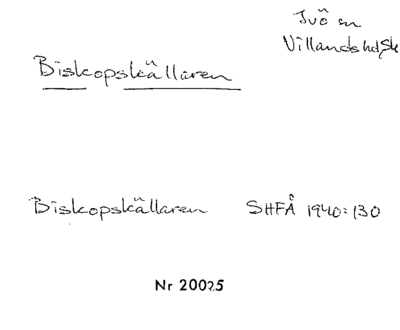 Ivö sn
Villands hd, Sk
Biskopskällaren
Biskopskällaren SHFÅ 1940:130
Nr 20025